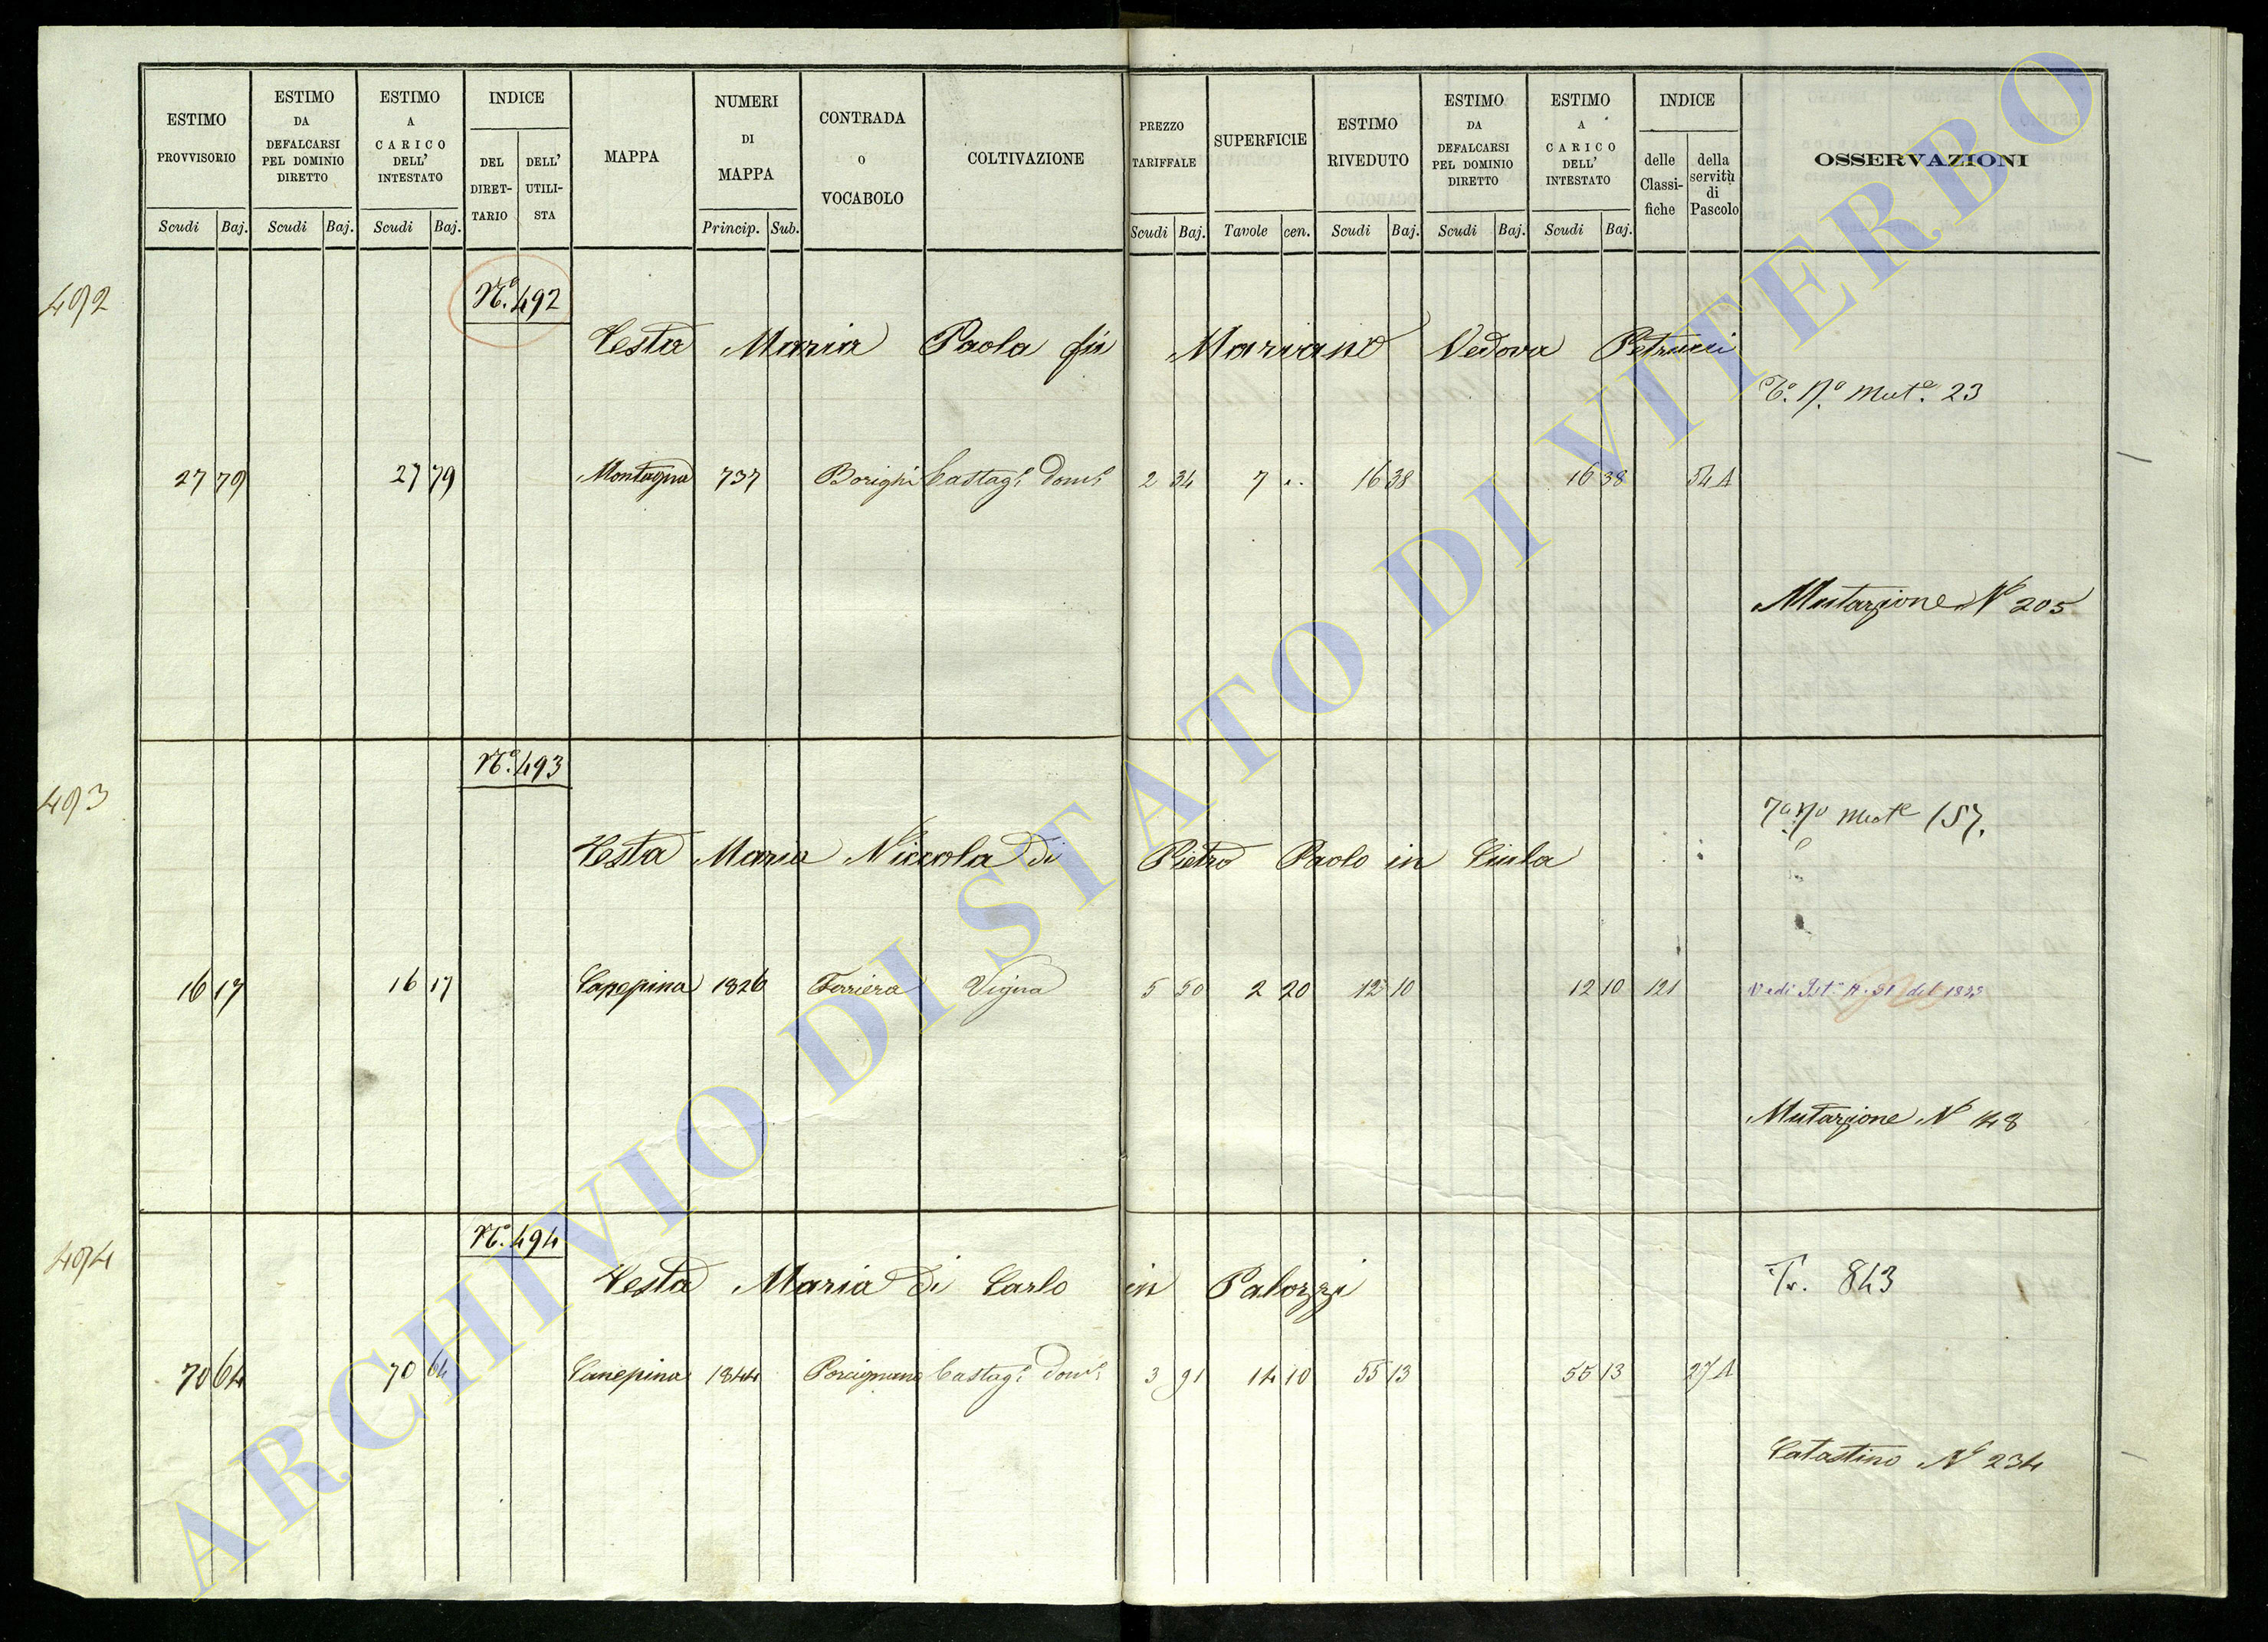 ESTIMO PROVVISORIO
Scudi Baj.
ESTIMO DA DEFALCARSI PEL DOMINIO DIRETTO
Scudi Baj.
ESTIMO A CARICO DELL' INTESTATO
Scudi Baj.
INDICE
DEL DIRET-TARIO
DELL' UTILI-STA
MAPPA
NUMERI DI MAPPA
Princip. Sub.
CONTRADA O VOCABOLO
COLTIVAZIONE
PREZZO TARIFFALE
Scudi Baj.
SUPERFICIE
Tavole cen.
ESTIMO RIVEDUTO
Scudi Baj.
ESTIMO DA DEFALCARSI PEL DOMINIO DIRETTO
Scudi Baj.
ESTIMO A CARICO DELL' INTESTATO
Scudi Baj.
INDICE
delle Classi-fiche
della servitù di Pascolo
OSSERVAZIONI
492
Nº. 492
Testa Maria Paola fu Mariano Vedova Petrucci
Nº Mutᵉ. 23
27 79 27 79 Montagna 737 Borighi Castagˡ. Domˡ 2 34 7 .. 16 38 16 38 54 A
Mutazione Nº 205
493
Nº. 493
Mutᵉ 157.
Testa Maria Niccola di Pietro Paolo in Ciula
16 17 16 17 Canepina 1826 Ferriera Vigna 5 50 2 20 12 10 12 10 121 Vedi
Mutazione Nº 148
494
Nº. 494
Testa Maria di Carlo in Palozzi
Tr. 843
70 64 70 64 Canepina 1844 Porcignano Castagˡ. Domˡ 3 91 14 10 55 13 55 13 27 A
Catastino Nº 234
ARCHIVIO DI STATO DI VITERBO